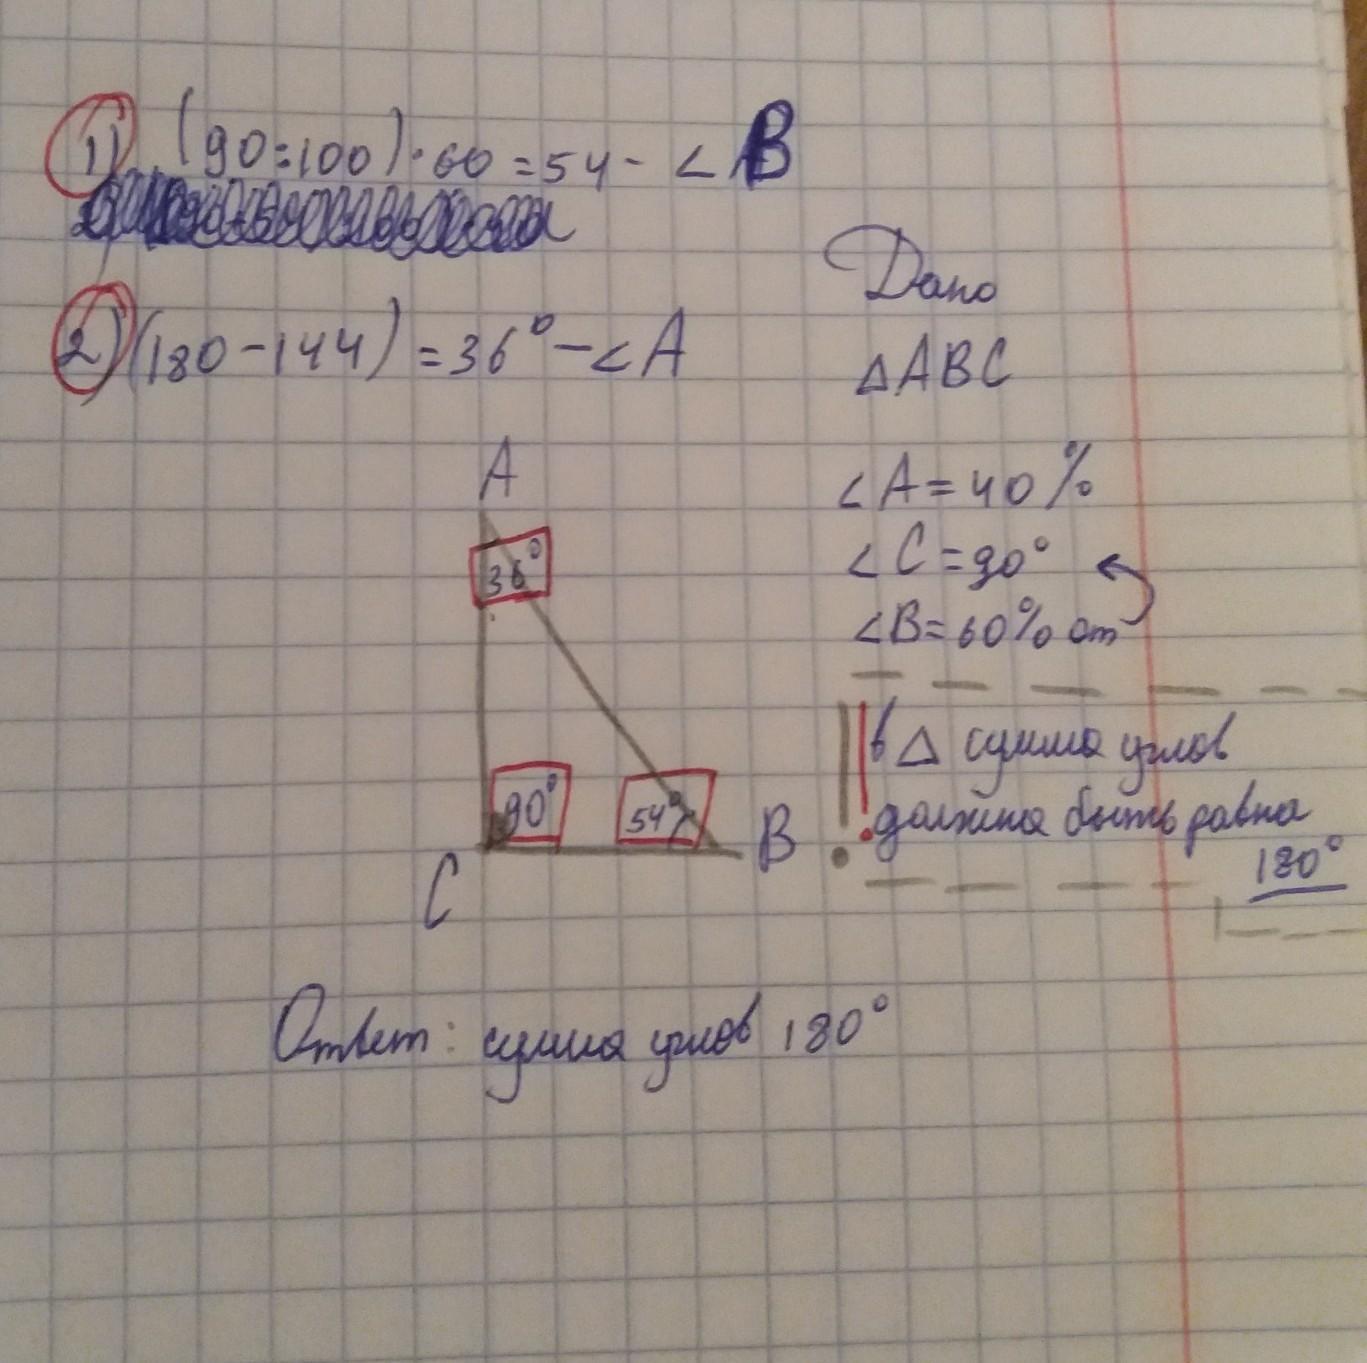 1) (90:100)·60=54- ∠B
2) (180-144)=36°-∠A
Дано
△ABC
∠A=40%
∠C=90°
∠B=60% от
в △ сумма углов
должна быть равна
180°
A
36°
90°
54°
B
C
Ответ: сумма углов 180°